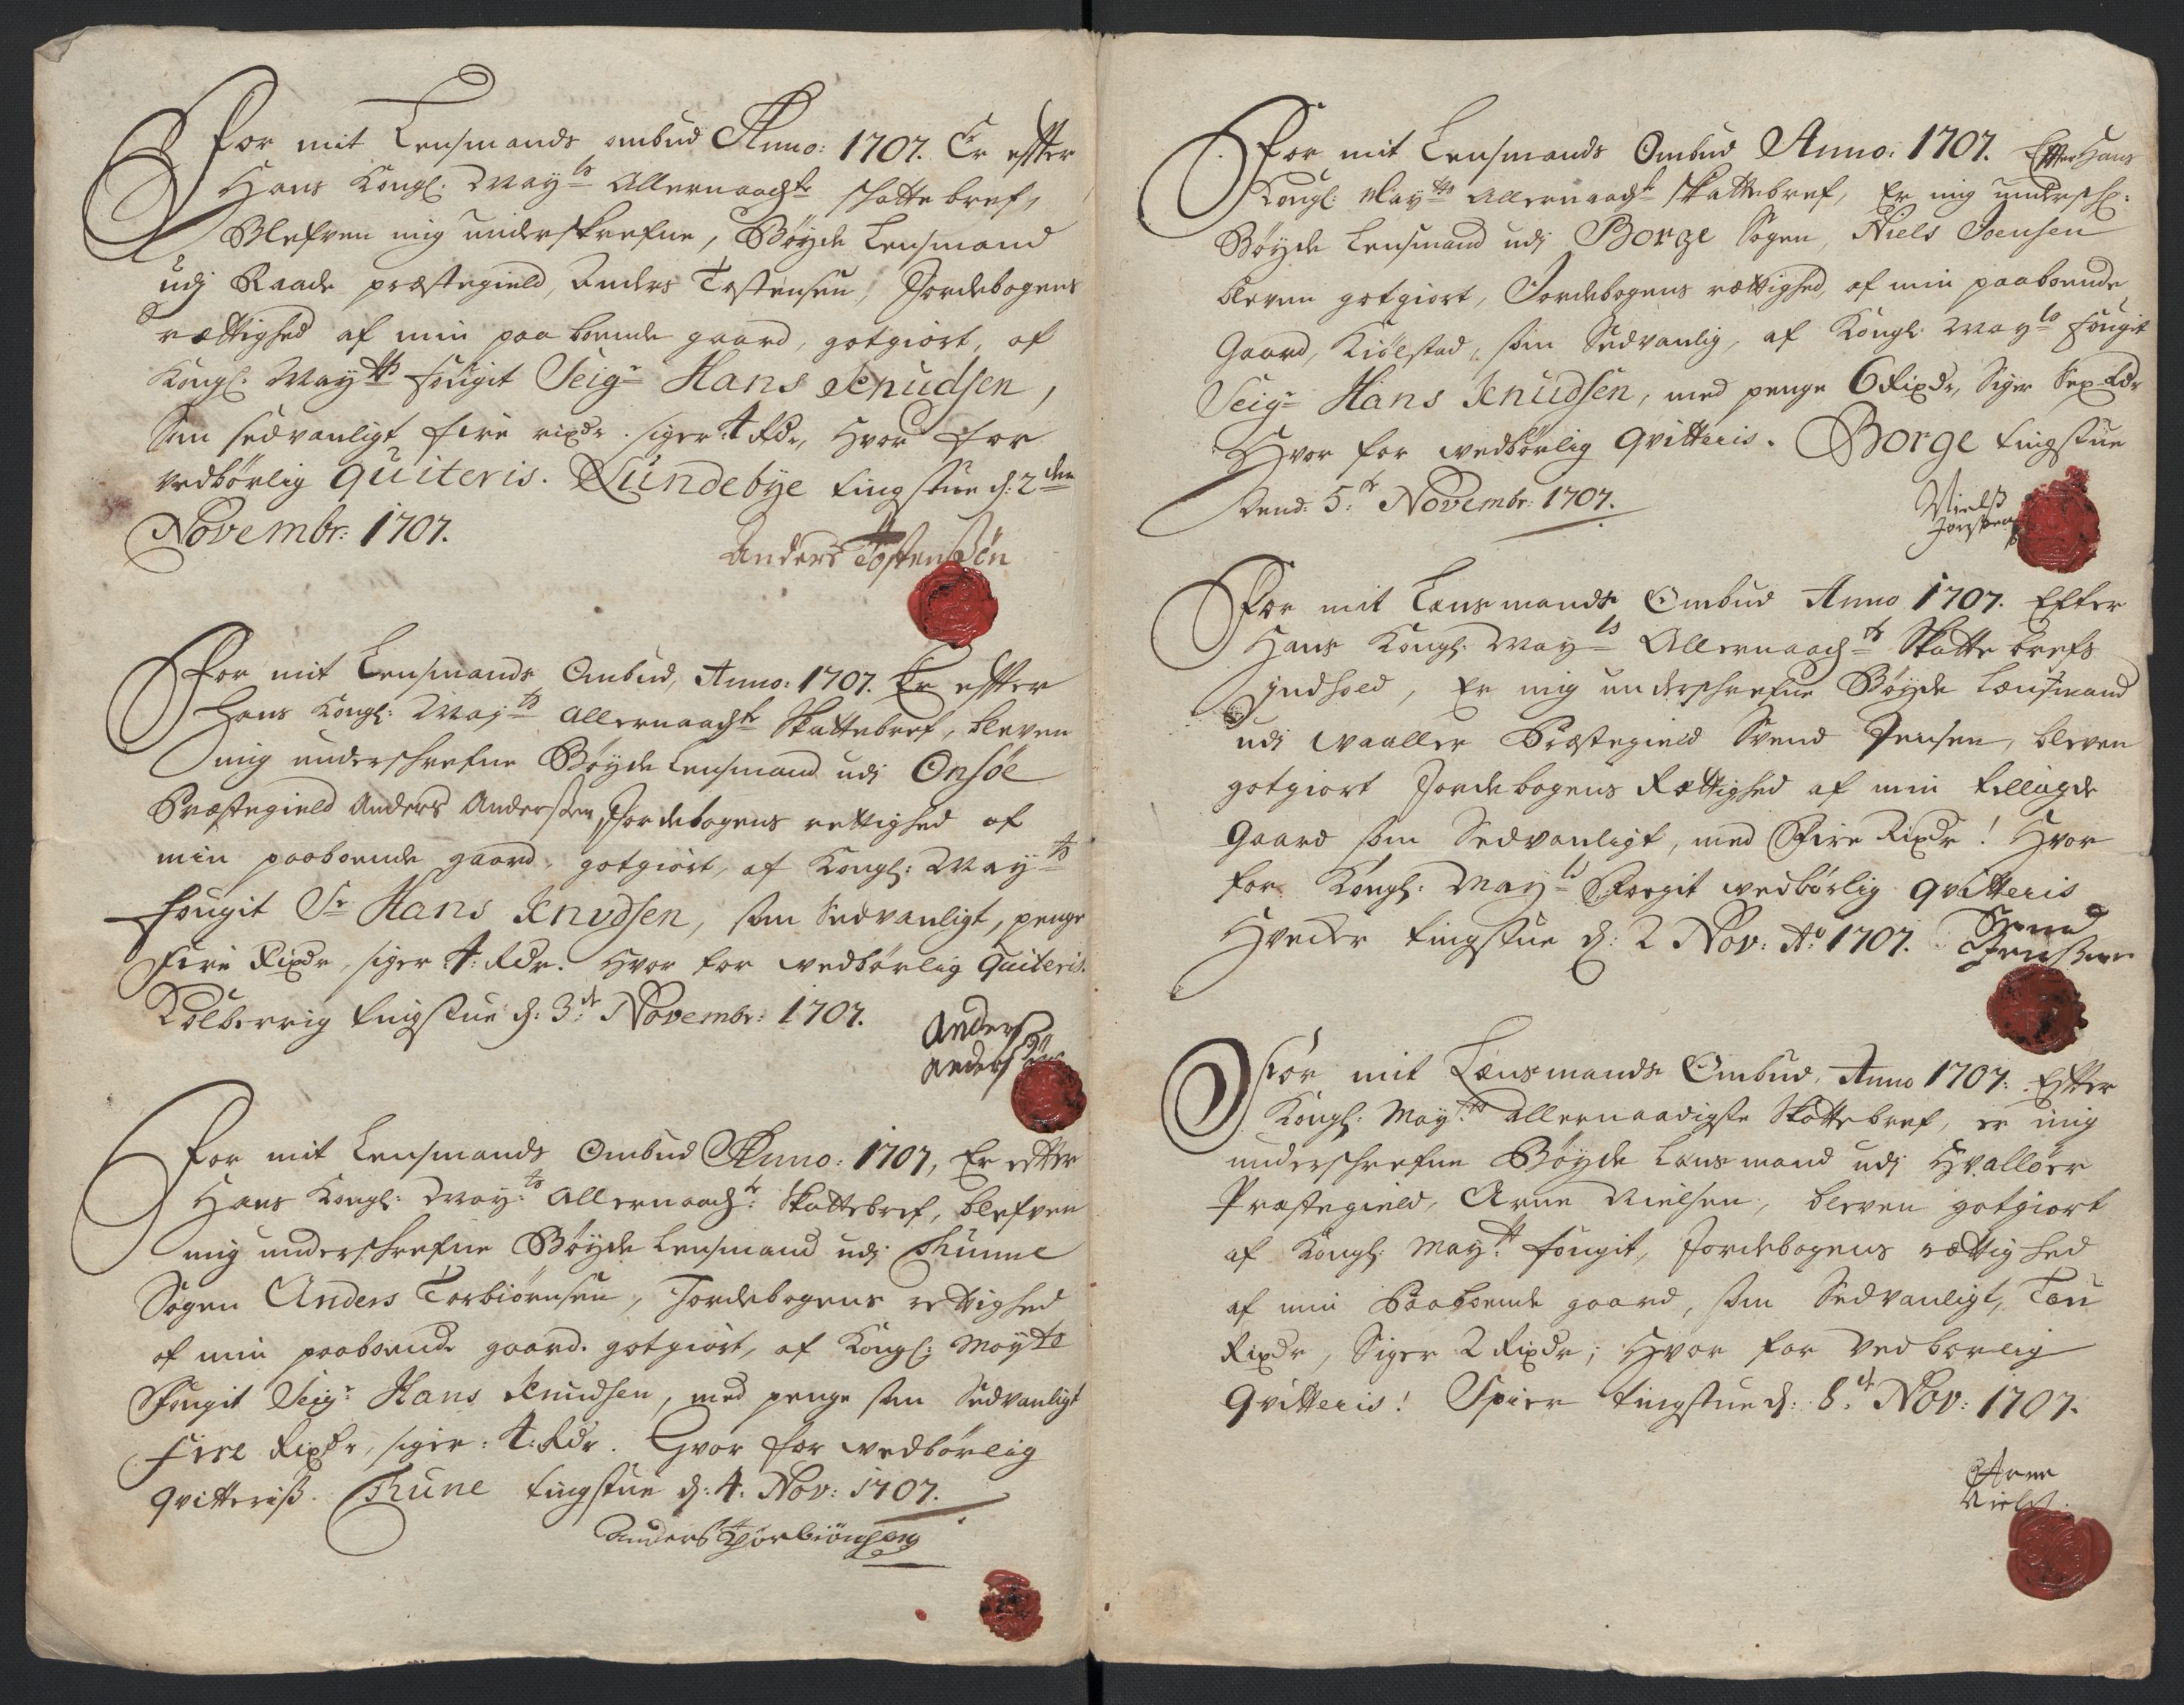 For mit Lensmands ombud Anno: 1707. Er effter
Hans Kongl: May.ts Allernaadste skatte bref,
Blefven mig underskrefne, Bøyde Lensmand
udj Raade præstegield, Anders Tostensen, Jordebogens
rættighed af min paa boende gaard, gotgiort, af
Kongl: May.tts fougit Seigr Hans Knudsen,
Som sedvanligt fire rixdr. siger 4 Rdr, Hvor for
vedbørlig Quiteris. Lundebye tingstue d: 2den
Novembr: 1707.
Anders Tostensøn
For mit Lensmands Ombud, Anno: 1707. Er effter
Hans Kongl: May.ts Allernaadste Skattebref, bleven
mig underschrefne Bøyde Lensmand udj Onsøe
Præstegield Anders Andersen, Jordebogens rettighed af
min paaboende gaard, gotgiort, af Kongl: May.ts
fougit Sr Hans Knudsen, som Sedvanligt, penge
Fire Rixdr, siger 4: Rdr. Hvor for wedbørlig Quiteris.
Kolberrig tingstue d: 3de Novembr: 1707.
Anders
Anders
For mit Lensmands Ombud Anno: 1707, Er effter
Hans Kongl: May:ts Allernaadste: Skattebref, blefven
mig underschrefne Bøyde Lensmand udj Thunne
Sogen Anders Torbiørnsen, Jordebogens rettighed
af min paaboende gaard. gotgiort, af Kongl: Mayts
Fougit Seigr Hans Knudsen, med penge som Sedvanligt
Fire Rixdr, siger: 4: Rdr. Hvor for wedbørlig
qvitteriß. Thune tingstue d: 4. Nov: 1707.
Anders Torbiørnsen
For mit Lensmands Ombud Anno: 1707. Effter Hans
Kongl: Mayts Allernaadste Skattebref, Er mig underschr:
Bøyde Lensmand udj Borge Sogen, Niels Joensen
bleven gotgiort, Jordebogens rættighed, af min paaboende
Gaard, Kiølstad, som Sedvanlig, af Kongl: Mayts fougit
Seigr Hans Knudsen, med penge 6 Rixdr, Siger Sex Rdr
Hvor for wedbørlig Qvitteris. Borge tingstue
Dend: 5te Novembr: 1707.
Nielß
Jonsen
For mit Lænsmands Ombud Anno 1707. Efter
Hans Kongl: Mayts Allernaadste Skatte brefs
Indhold, Er mig underschrefne Bøyde Lænsmand
udj Waaller Præstegield Svend Jensen, bleven
gotgiort Jordebogens Rættighed af min tillagde
Gaard som Sedvanligt, med Fire Rixdr! Hvor
for Kongl: Mayts Foegit wedbørlig qvitteris
Hveder tingstue d: 2 Nov: Ao 1707.
Svend
Jensen
For mit Lænsmands Ombud, Anno 1707: Effter
Kongl: Mayts allernaadigste Skattebref, er mig
underschrefne Bøyde Lænsmand udj Hvalløer
Præstegield, Arne Nielsen, bleven gotgiort
af Kongl: Mayts fougit, Jordebogens rættighed
af min Paaboende gaard, som Sedvanligt, Tou
Rixdr, Siger 2 Rixdr; Hvor for Vedbørlig
Qvitteris! Spier tingstue d: 8de Nov: 1707.
Arne
Niels